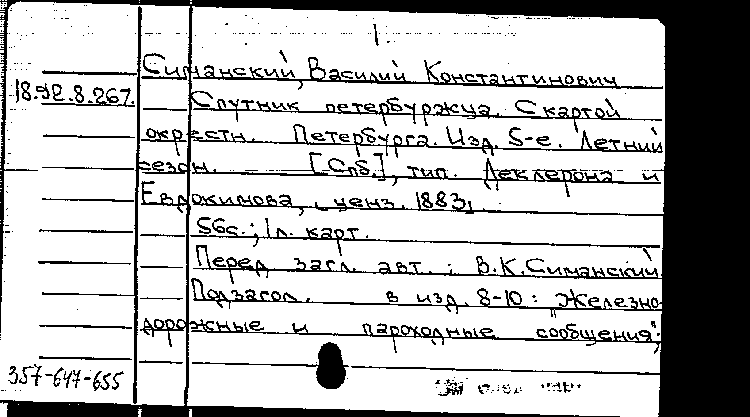 1.
Симанский, Василий Константинович
18.92.8.267.
Спутник петербуржца. С картой
окрестн. Петербурга. Изд. 5-е. Летний
сезон. [Спб.], тип. Деклерона и
Евдокимова, ценз. 1883,
56с.; 1л. карт.
Перед загл. авт.: В.К.Симанский
Подзагол. в изд. 8-10: "Железно-
дорожные и пароходные сообщения";
357-647-655